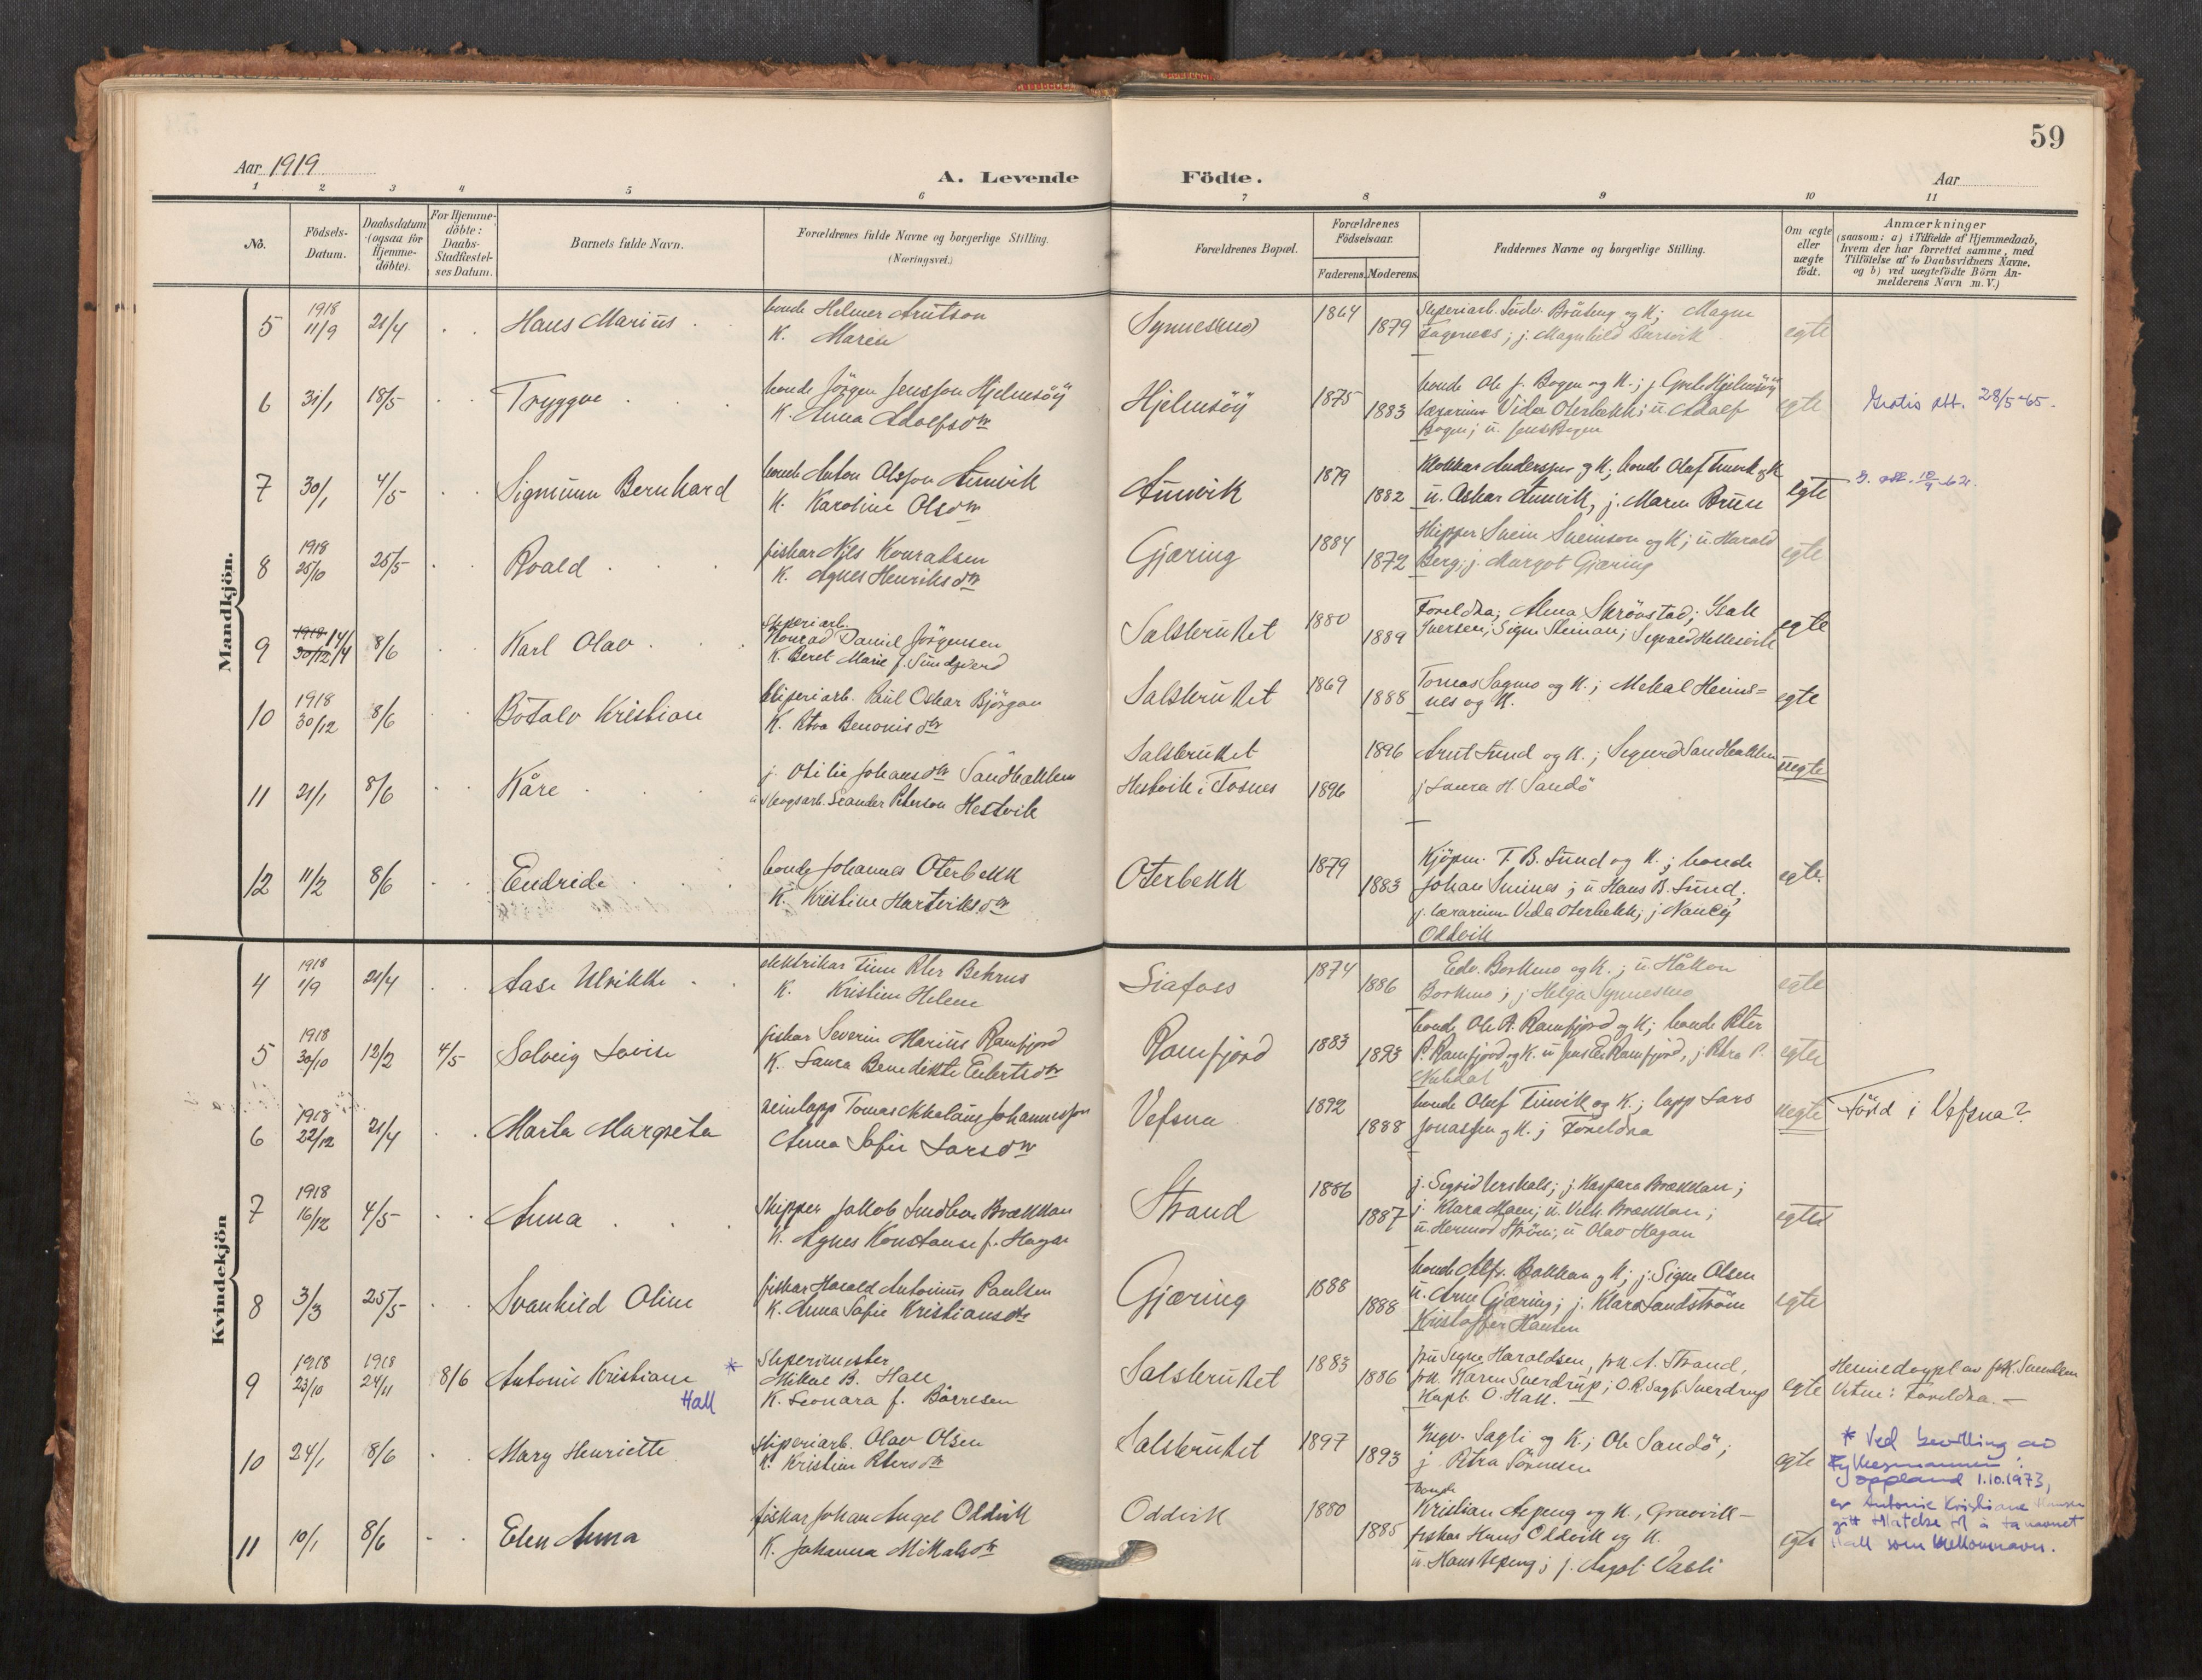 59
Aar 1919
A. Levende Födte.
Aar
1 2 3 4 5 6 7 8 9 10 11
No.
Födsels-
Datum.
Daabsdatum
(ogsaa for
Hjemme-
döbte).
For Hjemme-
döbte:
Daabs-
Stadfæstel-
ses Datum.
Barnets fulde Navn.
Forældrenes fulde Navne og borgerlige Stilling.
(Næringsvei.)
Forældrenes Bopæl.
Forældrenes
Födselsaar.
Faderens. Moderens.
Faddernes Navne og borgerlige Stilling.
Om ægte
eller
uægte
födt.
Anmærkninger
(saasom: a) i Tilfælde af Hjemmedaab,
hvem der har forrettet samme, med
Tilföielse af to Daabsvidners Navne.
og b) ved uægtefödte Börn An-
melderens Navn m. V.)
Mandkjön.
5 1918 11/9 21/4 Hans Marius
bonde Helmer Arntson
K. Marie
Synnesmo 1864 1879
Magnhild
egte
6 31/1 18/5 Tryggve
bonde Jörgen Jensson Hjelmsöy
K. Anna Adolfsdtr
Hjelmsöy 1875 1883
bonde Ole J. Bogen og K.; j. Grete Hjelmsöy
lærarinne Vida Oterbekk; u. Adolf
Bogen; u. Jens Bogen
egte
Gratis att. 28/5-65.
7 30/1 4/5 Sigmunn Bernhard
bonde Anton Olsson Aunvik
K. Karoline Olsdtr
Aunvik 1879 1882
Klokkar Anderssen og K; bonde Olaf
u. Oskar Aunvik, j. Maren Bruu
egte
8 1918 25/10 25/5 Roald
fiskar Nils Konradsen
K. Agnes Henriksdtr
Gjæring 1884 1872
Skipper Svein Sveinson og K; u. Harald
Berg; j. Margot Gjæring
egte
9 1918 30/12 14/4 8/6 Karl Olav
Sliperiarb.
Konrad Daniel Jörgensen
K. Beret Marie f.
Salsbruket 1880 1889
Foreldra; Alma Skrövstad; Isak
Iversen; Signe Steinan; Sigvald Hellesvik
egte
10 1918 30/12 8/6 Botalv Kristian
Sliperiarb. Paul Oskar Björgan
K. Petra Benonisdtr
Salsbruket 1869 1888
Tomas Sagmo og K.; Mekal Heims=
nes og K.
egte
11 21/1 8/6 Kåre
j. Otilie Johansdtr Sandbakken
u. skogsarb. Leander Peterson Hestvik
Salsbruket 1896
Hestvik i Fosnes 1896
Arnt Lund og K.; Sigurd Sandbakken
j Laura H. Sandö
uegte
12 11/2 8/6 Endride
bonde Johannes Oterbekk
K. Kristine Hartviksdtr
Oterbekk 1879 1883
Kjöpm. T. B. Lund og K.; bonde
Johan; u Hans B. Lund;
j. lærarinne Vida Oterbekk; j Nancy
Oddvik
egte
Kvindekjön
4 1918 1/9 21/4 Aase Ulrikke
elektrikar Finn Peter Behrns
K. Kristine Helene
Siafoss 1874 1886
Edv. Borkmo og K.; u. Håkon
Borkmo; j Helga Synnesmo
egte
5 1918 30/10 12/2 4/5 Solveig Lovise
fiskar Severin Marius Ramfjord
K. Laura Benedikte Eilertsdtr
Ramfjord 1883 1893
bonde Ole A. Ramfjord og K; bonde Peter
P. Ramfjord og K. u Ramfjord, j. Petra P.
egte
6 1918 22/12 21/4 Marta Margreta
reinlapp Tomas Johannessen
Anna Sofie Larsdtr
Vefsna 1892 1888
bonde Olaf og K.; lapp Lars
Jonassen og K.; Foreldra
uegte
Född i Vefsna?
7 1918 16/12 4/5 Anna
Skipper Jakob Brækkan
K. Agnes Konstanse f. Hagan
Strand 1886 1887
j. Sigrid; j. Kaspara Brækkan;
j. Klara; u. Vilh. Brækkan;
u. Hermod Ström; u Olav Hagan
egte
8 3/3 25/5 Svanhild Oline
fiskar Harald Antonius Paulsen
K. Anna Sofie Kristiansdtr
Gjæring 1888 1888
bonde Alfr. Bakkan og K; j. Signe Olsen
u. Arne Gjæring; j. Klara Sandström
Kristoffer Hansen
egte
9 1918 23/10 1918 24/11 8/6 Antonie Kristiane * Hall
Sliperimester
Mikal B. Hall
K. Leonara f. Börresen
Salsbruket 1883 1886
fru Signe Haraldsen, frk. A. Strand,
frk. Karen Sverdrup; O.R. Sagf. Sverdrup
Kapt. O. Hall.
egte
Heimedöypt av
Vitne: Foreldra.—
10 24/1 8/6 Mary Henriette
Sliperiarb. Olav Olsen
K. Kristine Petersdtr
Salsbruket 1897 1893
Ingv. Sagli og K.; Ole Sandö;
j Petra Sörensen
egte
* Ved bevilling av
Fylkesmannen i
Oppland 1.10.1973,
er Antonie Kristiane Hansen
gitt tillatelse til å ta navnet
Hall som mellomnavn.
11 10/1 8/6 Elen Anna
fiskar Johan Angel Oddvik
K. Johanna Mikalsdtr
Oddvik 1880 1885
bonde
Kristian Aspeng og K., Gravvik—
fiskar Hans Oddvik og K.
u. Hans Aspeng;
egte